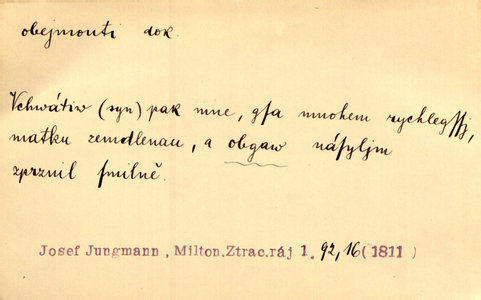 obejmouti dok.
Vchwátiw (syn) pak mne, gsa mnohem rychlegssj,
matku zemdlenau, a obgaw násyljm
zprznil smilně.
Josef Jungmann, Milton.Ztrac.ráj 1. 92,16 (1811)